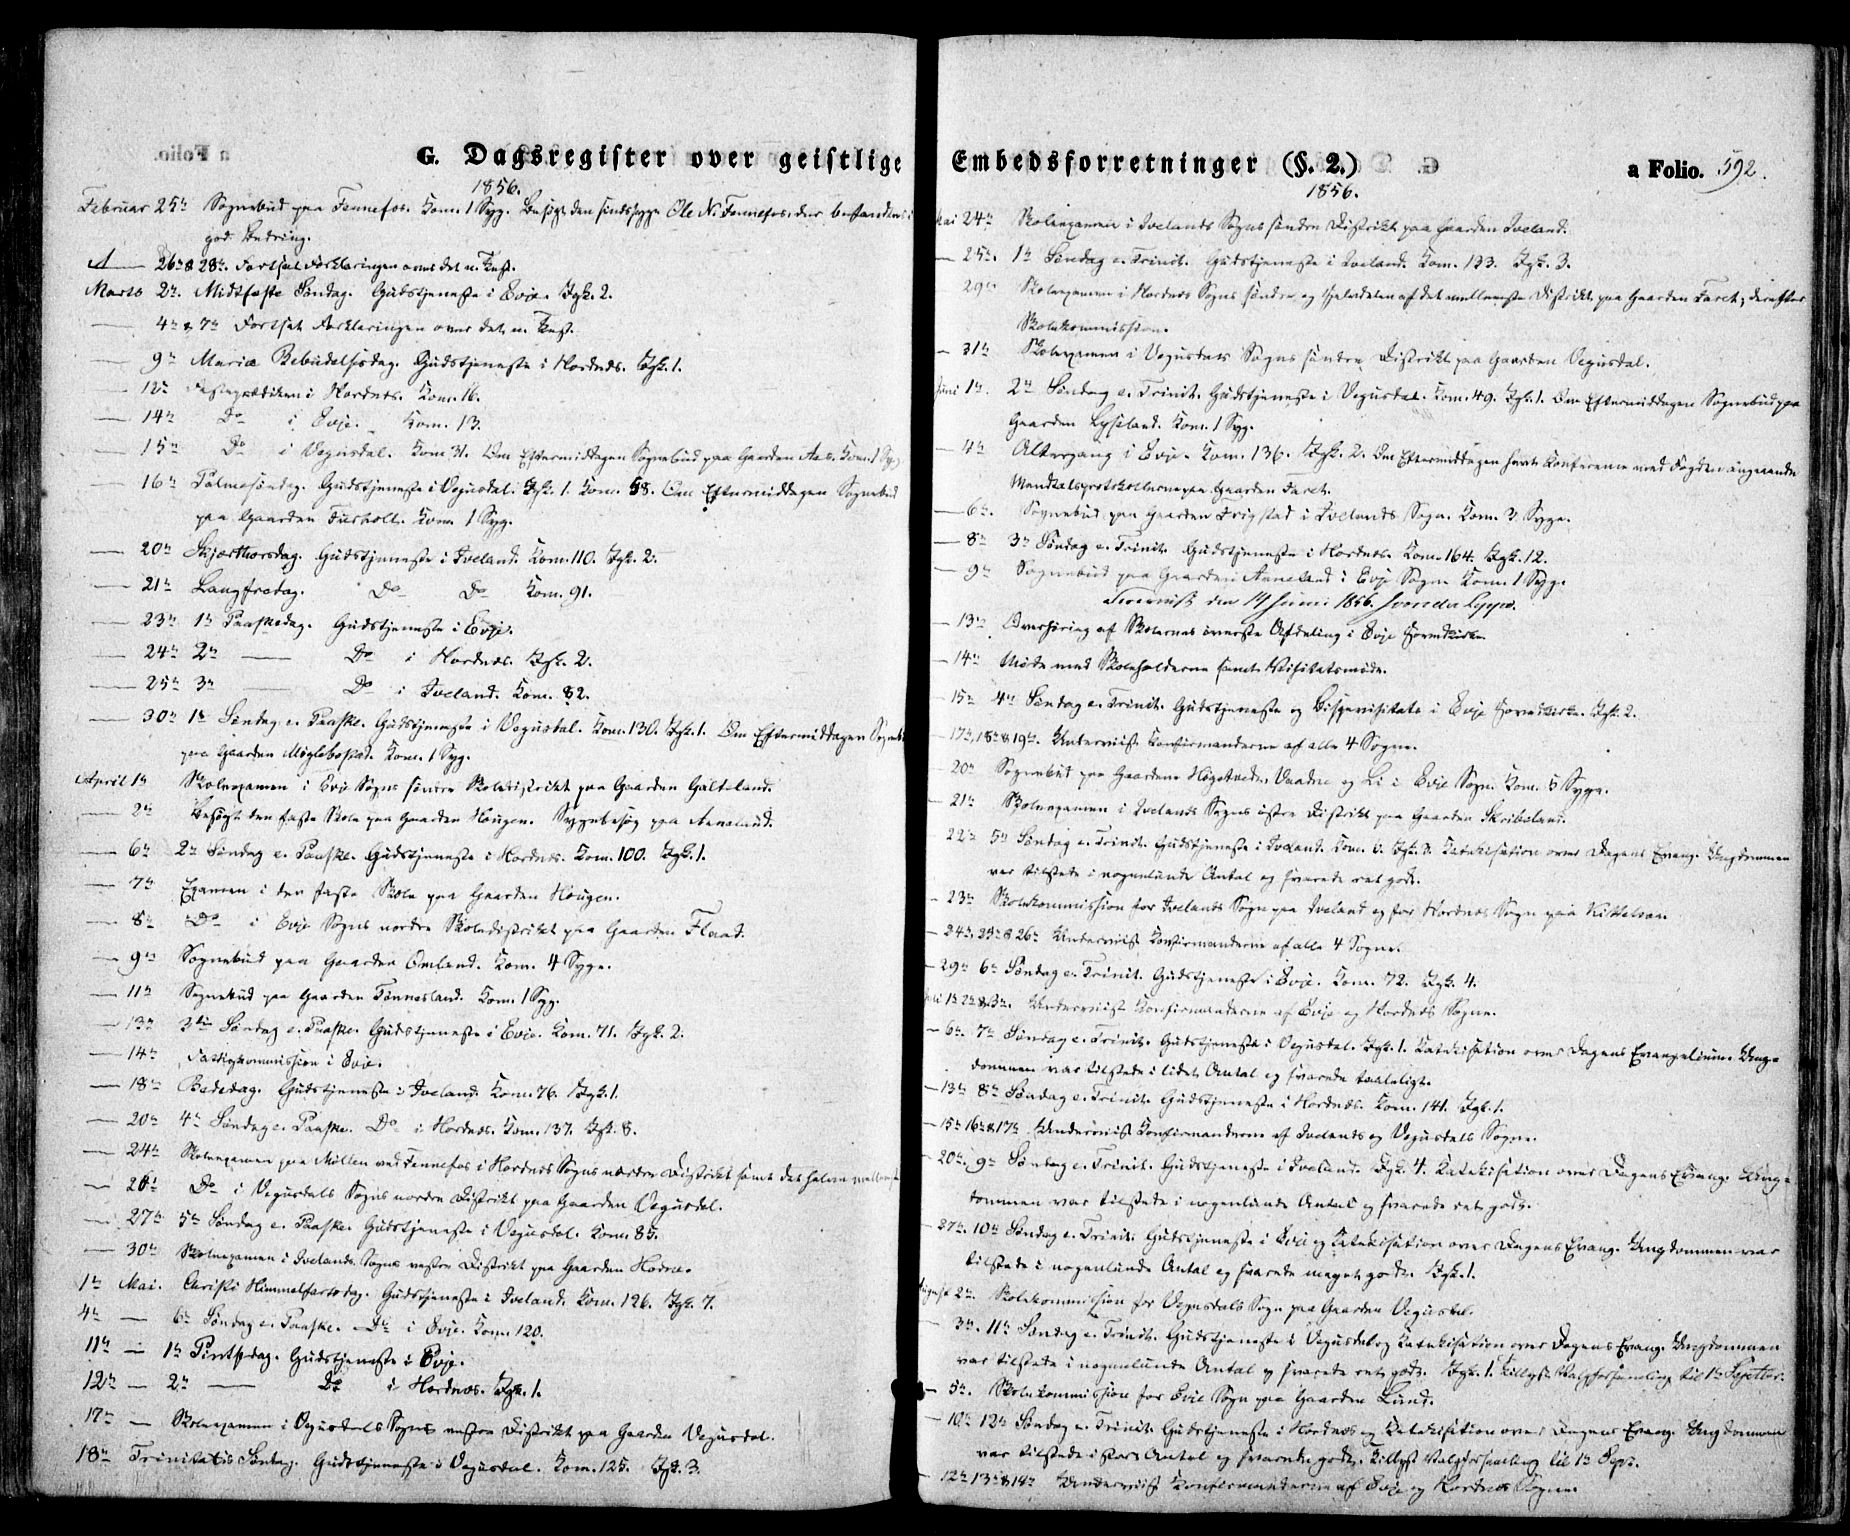 G. Dagsregister over geistlige
1856.
Februar 25de Sognebud paa Fennefos. Kom. 1 Syg. Besøgt den sindssyge Ole N. Fennefos, der befandtes i
god Bedring.
26de & 28de. Fortsat Forklaringen over det n. Test.
Marts 2de. Midtfaste Søndag. Gudstjeneste i Evje. Dgk. 2.
— 4de & 7de Fortsat Forklaringen over det n. Test.
— 9de Mariæ Bebudelsesdag. Gudstjeneste i Hordnæs. Dgk. 1.
— 12te Fasteprædiken i Hordnæs. Kom. 16.
— 14de Do i Evje. Kom. 13.
— 15de Do i Vegusdal. Kom 31. Om Eftermiddagen Sognebud paa Gaarden Aas. Kom. 1 Syg.
— 16de Palmesøndag. Gudstjeneste i Vegusdal. Dgk. 1. Kom. 58. Om Eftermiddagen Sognebud
paa Gaarden Kom. 1 Syg.
— 20de Skjærthorsdag. Gudstjeneste i Iveland. Kom. 110. Dgk. 2.
— 21de Langfredag. Do Do Kom. 91.
— 23de 1ste Paaskedag. Gudstjeneste i Evje.
— 24de 2den — Do i Hordnæs. Dgk. 2.
— 25de 3die — Do i Iveland. Kom. 82.
— 30te 1ste Søndag e. Paaske. Gudstjeneste i Vegusdal. Kom. 130. Dgk. 1. Om Eftermiddagen
paa Gaarden Møglebostad. Kom. 1 Syg.
April 1ste Skoleexamen i Evje Sogns søndre Skoledistrikt paa Gaarden Galteland.
— 2den Besøgt den faste Skole paa Gaarden Hougen. Sygebesøg paa Aaneland.
— 6te 2den Søndag e. Paaske. Gudstjeneste i Hordnæs. Kom. 100. Dgk. 1.
— 7de Examen i den faste Skole paa Gaarden Hougen.
— 8de Do i Evje Sogns nordre Skoledistrikt paa Gaarden Flaad.
— 9de Sognebud paa Gaarden Omland. Kom. 4 Syge.
— 11te Sognebud paa Gaarden Tønnesland. Kom. 1 Syg.
— 13de 3die Søndag e. Paaske. Gudstjeneste i Evje. Kom. 71. Dgk. 2.
— 14de Fattigkommission i Evje.
— 18de Bededag. Gudstjeneste i Iveland. Kom. 76. Dgk. 1.
— 20de 4de Søndag e. Paaske. Do i Hordnæs. Kom. 137. Dgk. 8.
— 24de Skoleexamen paa Møllen ved Fennefos i Hordnæs Sogns nordre Distrikt samt det halve mellemste
— 26de Do i Vegusdals Sogns nordre Distrikt paa Gaarden Vegusdal.
— 27de 5te Søndag e. Paaske. Gudstjeneste i Vegusdal. Kom. 85.
— 30te Skoleexamen i Ivelands Sogns vestre Distrikt paa Gaarden Hodne.
1ste Mai. Christi Himmelfartsdag. Gudstjeneste i Iveland. Kom. 126. Dgk. 7.
4de — 6te Søndag e. Paaske. Do i Evje. Kom. 120.
11te — 1ste Pintsedag. Gudstjeneste i Evje.
12te — 2den — Do i Hordnæs. Dgk. 1.
17de — Skoleexamen i Vegusdals Sogns vestre Distrikt paa Gaarden Vegusdal.
18de Trinitatis Søndag. Gudstjeneste i Vegusdal. Kom. 125. Dgk. 3.
Embedsforretninger (§. 2.) a Folio. 592.
1856.
Mai 24de Skoleexamen i Ivelands Sogns søndre Distrikt paa Gaarden Iveland.
— 25de. 1ste Søndag e. Trinit. Gudstjeneste i Iveland. Kom. 133. Dgk. 3.
29de Skoleexamen i Hordnæs Sogns søndre og halvdelen af det mellemste Distrikt paa Gaarden Faret; derefter
Skolekommission.
— 31te Skoleexamen i Vegusdals Sogns søndre Distrikt paa Gaarden Vegusdal.
Juni 1ste. 2den Søndag e. Trinit. Gudstjeneste i Vegusdal. Kom. 49. Dgk. 1. Om Eftermiddagen Sognebud paa
Gaarden Lyseland. Kom. 1 Syg.
— 4de Altergang i Evje. Kom. 136. Dgk. 2. Om Eftermiddagen havt Konference med Fogden angaaende
Mandtalsprotokollerne paa Gaarden Faret.
— 6te. Sognebud paa Gaarden Frigstad i Ivelands Sogn. Kom. 3 Syge.
— 8de 3die Søndag e. Trinit. Gudstjeneste i Hordnæs. Kom. 164. Dgk. 12.
— 9de Sognebud paa Gaarden Aaneland i Evje Sogn. Kom. 1 Syg.
den 14 Juni 1856.
— 13de Overhøring af Skolernes øverste Afdeling i Evje Hovedkirke.
— 14de Møde med Skoleholderne samt Visitatsmøde.
— 15de 4de Søndag e. Trinit. Gudstjeneste og Bispevisitats i Evje Hovedkirke. Dgk. 2.
— 17de, 18de & 19de. Underviist Konfirmanderne af alle 4 Sogne.
— 20de Sognebud paa Gaardene Høgetveden, Vaadne og Li i Evje Sogn. Kom. 5 Syge.
— 21de Skoleexamen i Ivelands Sogns østre Distrikt paa Gaarden Skribeland.
22de 5te Søndag e. Trinit. Gudstjeneste i Iveland. Kom. 6. Dgk. 8. Katekisation over Dagens Evang. Ungdommen
var tilstede i nogenlunde Antal og svarede ret godt.
— 23de Skolekommission for Ivelands Sogn paa Iveland og for Hordnæs Sogn paa Kittelsaa.
— 24de, 25de & 26de Underviist Konfirmanderne af alle 4 Sogne.
— 29de 6te Søndag e. Trinit. Gudstjeneste i Evje. Kom. 72. Dgk. 4.
Juli 1ste 2den & 3die. Underviist Konfirmanderne af Evje og Hordnæs Sogne.
— 6te. 7de Søndag e. Trinit. Gudstjeneste i Vegusdal. Dgk. 1. Katekisation over Dagens Evangelium. Ung-
dommen var tilstede i lidet Antal og svarede taaleligt.
— 13de 8de Søndag e. Trinit. Gudstjeneste i Hordnæs. Kom. 141. Dgk. 1.
— 15de 16de & 17de Underviist Konfirmanderne af Ivelands og Vegusdals Sogne.
— 20de. 9de Søndag e. Trinit. Gudstjeneste i Iveland. Dgk. 4. Katekisation over Dagens Evang. Ung-
dommen var tilstede i nogenlunde Antal og svarede ret godt.
— 27de. 10de Søndag e. Trinit. Gudstjeneste i Evje og Katekisation over Dagens Evang. Ungdommen var
tilstede i nogenlunde Antal og svarede meget godt. Dgk. 1.
August 2den. Skolekommission for Vegusdals Sogn paa Gaarden Vegusdal.
— 3die. 11te Søndag e. Trinit. Gudstjeneste i Vegusdal og Katekisation over Dagens Evang. Ungdommen
var tilstede i nogenlunde Antal og svarede ret godt. Dgk. 1. Tillyst Valgforsamling til 1ste Septbr.
— 5te. Skolekommission for Evje Sogn paa Gaarden Lund.
— 10de 12te Søndag e. Trinit. Gudstjeneste i Hordnæs og Katekisation over Dagens Evang. Ungdommen
var tilstede i stort Antal og svarede godt. Tillyst Valgforsamling til 1ste Sept.
— 12te 13de & 14de Underviist Konfirmanderne af Evje og Hordnæs Sogne.